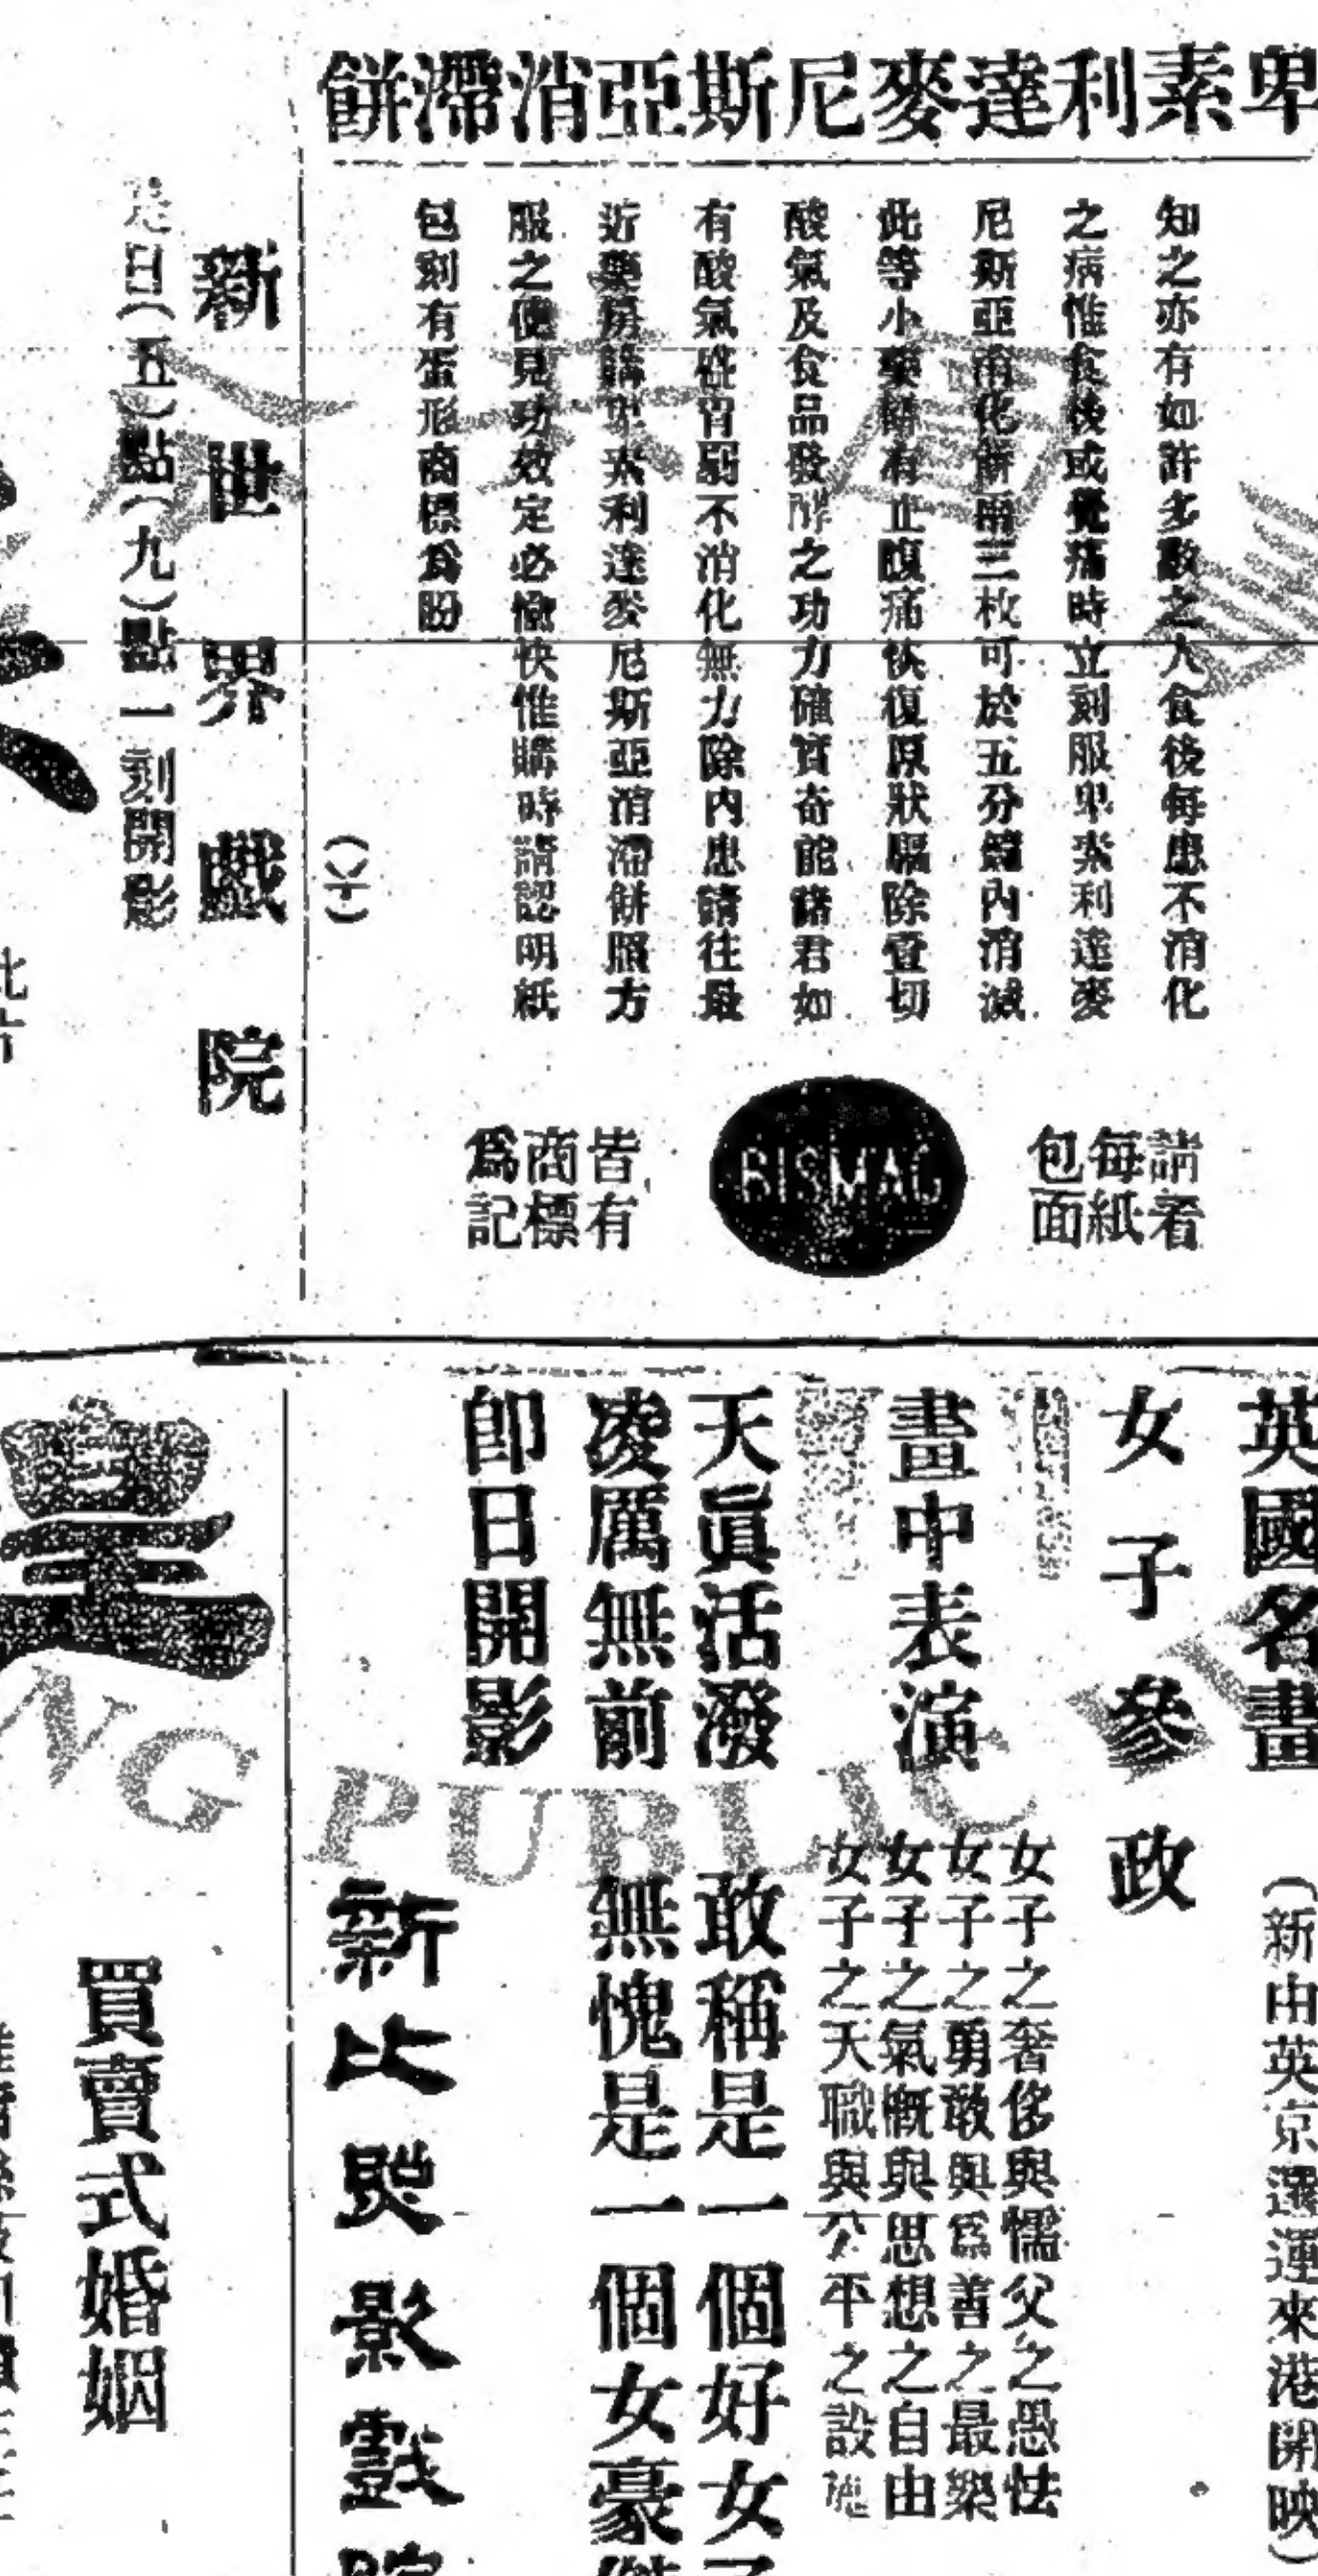 卑素利達麥尼斯亞消滯餅
知之亦有如許多數之人食後每患不消化
之病惟食後或覺痛時立刻服卑素利達麥
尼斯亞消化餅兩三枚可於五分鐘內消滅
此等小藥餅有止腹痛恢復原狀驅除壹切
酸氣及食品發酵之功力確實奇能諸君如
有酸氣在胃弱不消化無力除內患請往最
近藥房購卑素利達麥尼斯亞消滯餅照方
服之便見功效定必愉快惟購時請認明紙
包刻有蛋形商標爲盼
(六十)
請看
每紙
包面
BISMAG
皆有
商標
爲記
新世界戲院
是日(五)點(九)點一刻開影
英國名畫
(新由英京運來港開映)
女子參政
畫中表演
女子之奢侈與懦父之愚怯
女子之勇敢與爲善之最樂
女子之氣概與思想之自由
女子之天職與公平之設施
天眞活潑
敢稱是一個好女子
凌厲無前
無愧是一個女豪傑
即日開影
新比照影戲院
皇
買賣式婚姻
NG PUBLIC